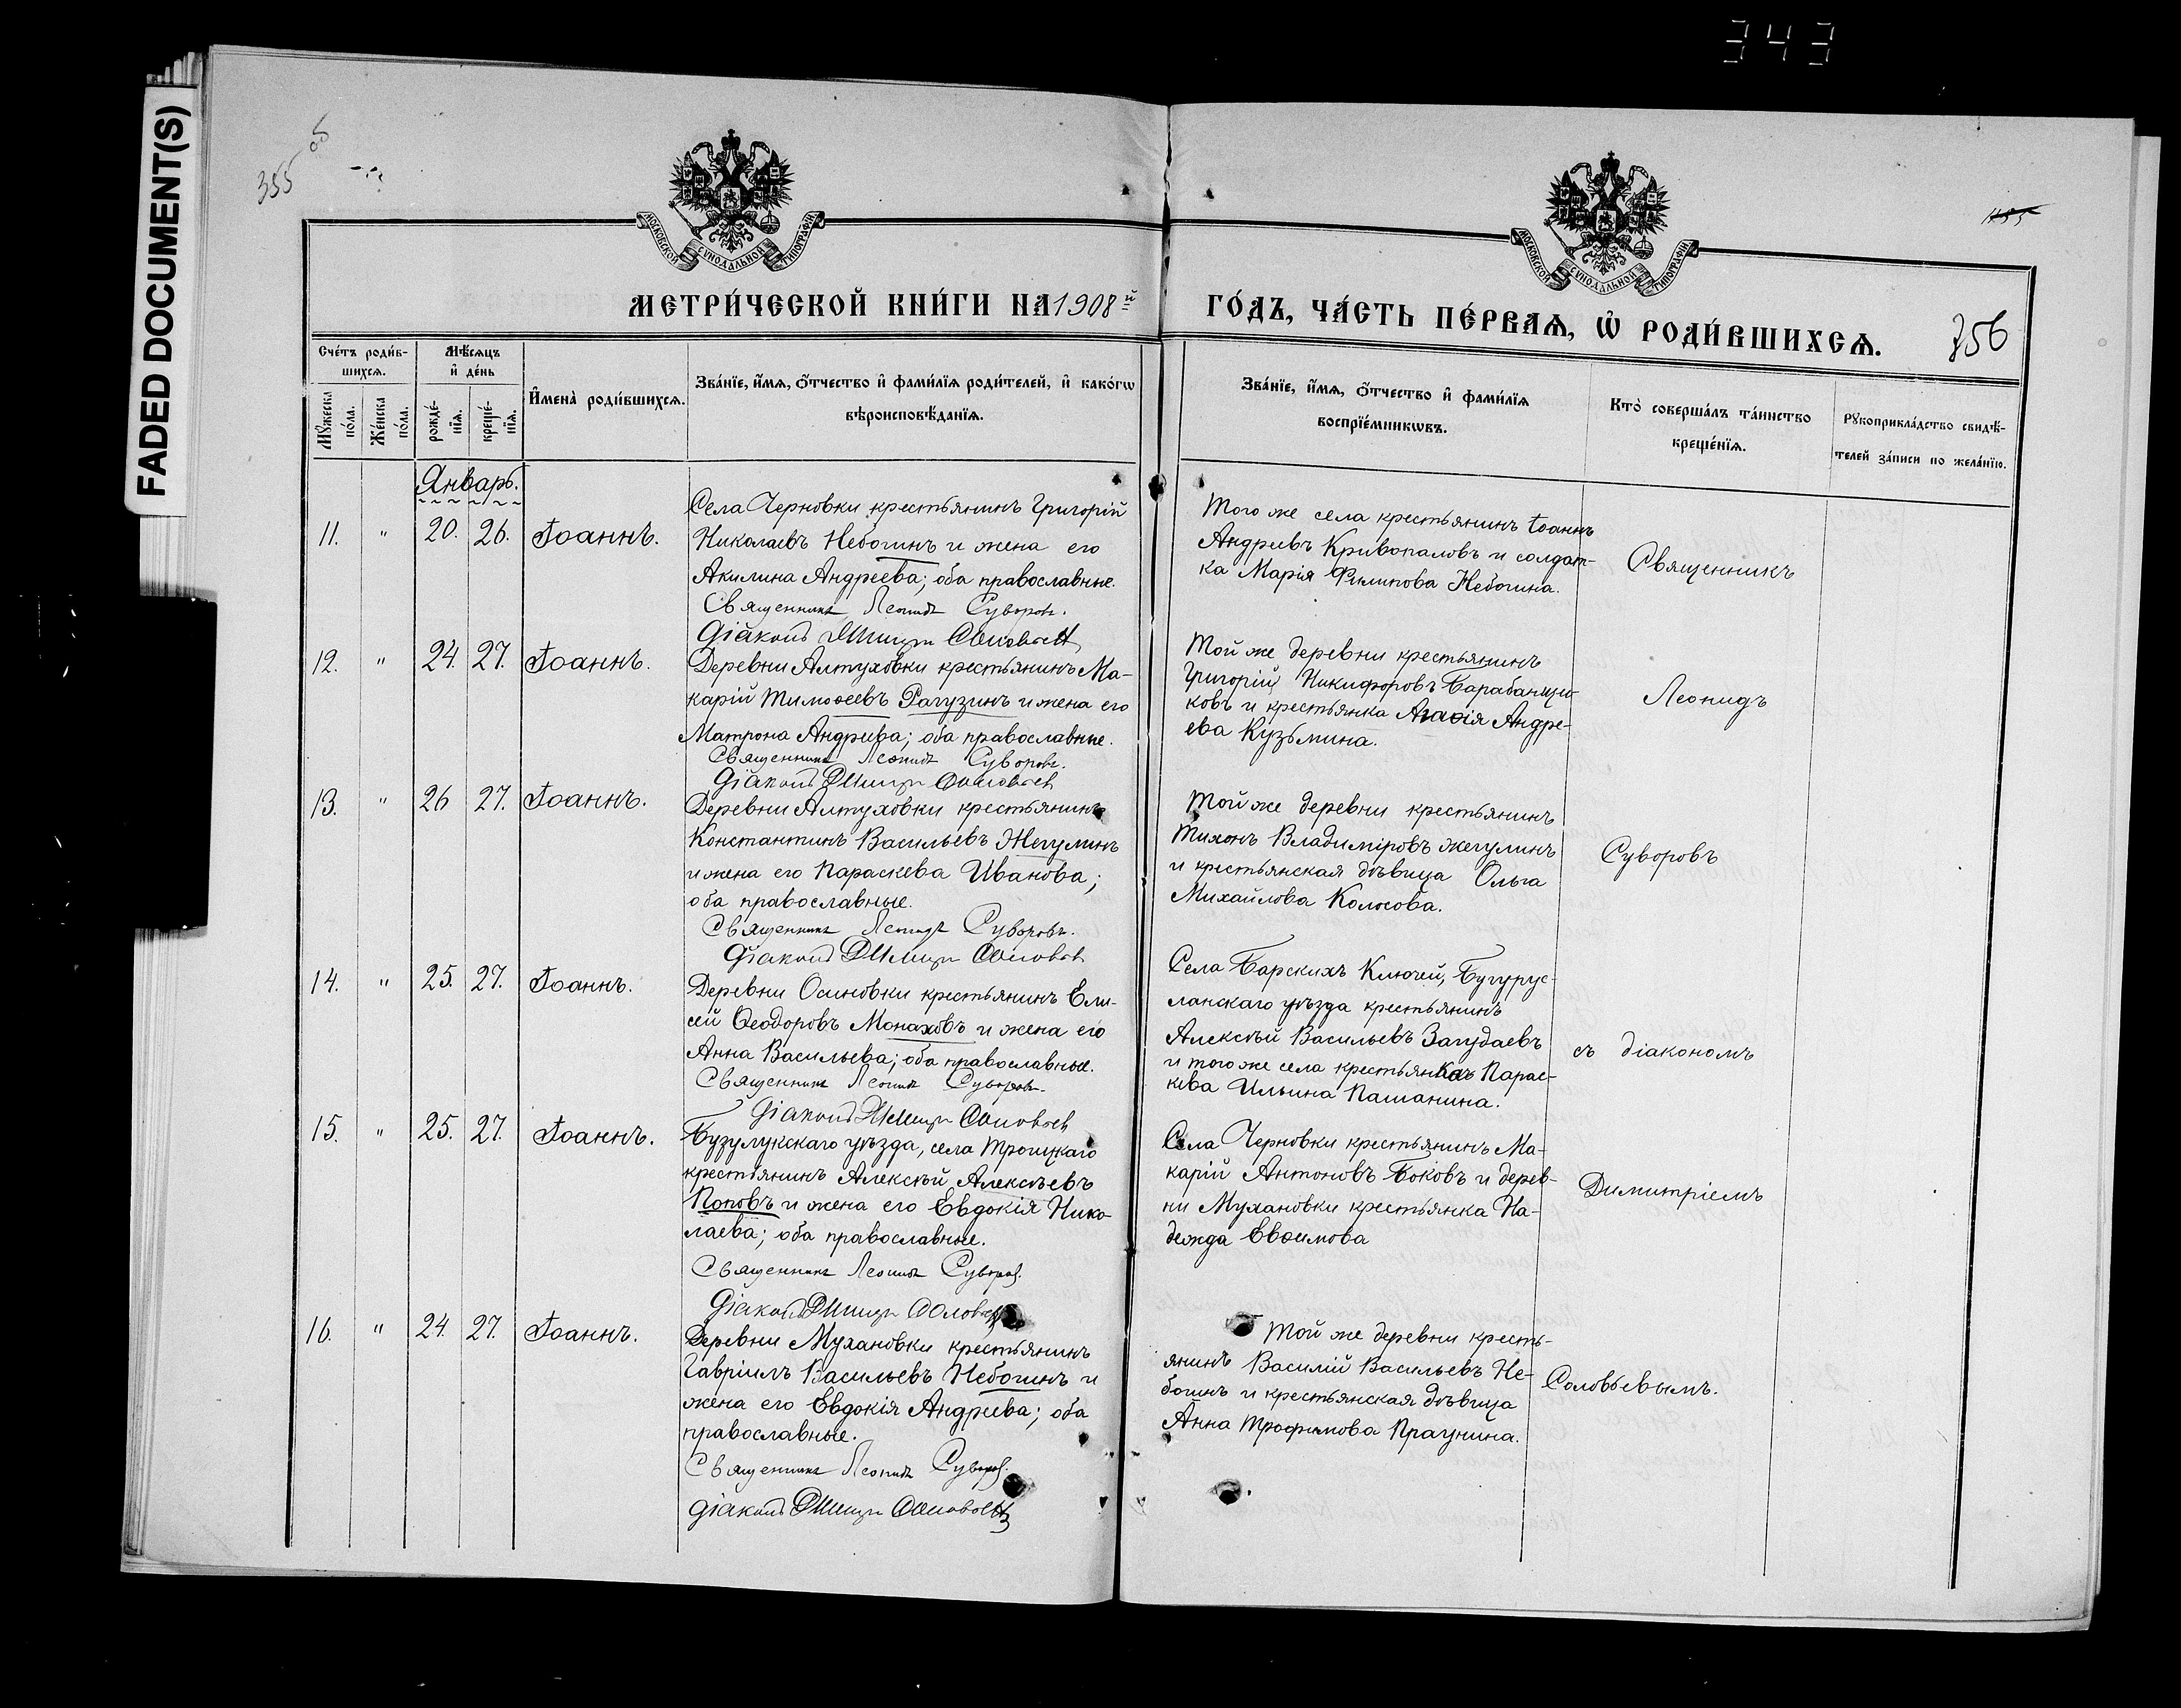 343
FADED DOCUMENT(S)
355
МОСКОВСКОЙ СѴНОДАЛЬНОЙ ТИПОГРАФІИ
МОСКОВСКОЙ СѴНОДАЛЬНОЙ ТИПОГРАФІИ
МЕТРИ́ЧЕСКОЙ КНИ́ГИ НА 1908й ГО́ДЪ, ЧА́СТЬ ПЕ́РВАѦ, Ѽ РОДИ́ВШИХСѦ.
356
Сче́тъ роди́в-
шихсѧ.
Мѣ́сѧцъ
и҆ де́нь
Мꙋ́жеска
по́ла.
Же́нска
по́ла.
рожде́-
нїѧ.
креще́-
нїѧ.
И҆мена̀ роди́вшихсѧ.
Зва́нїе, и҆́мѧ, ѻ҆́тчество и҆ фами́лїѧ роди́телей, и҆ како́гѡ
вѣроисповѣ́данїѧ.
Зва́нїе, и҆́мѧ, ѻ҆́тчество и҆ фами́лїѧ
воспрїе́мникѡвъ.
Кто̀ соверша́лъ та́инство
креще́нїѧ.
Рꙋкоприкла́дство свидѣ́-
телей за́писи по жела́нїю.
Январь.
11. " 20. 26. Іоаннъ.
Села Черновки крестьянинъ Григорій
Николаевъ Небогинъ и жена его
Акилина Андреева; оба православные.
Священникъ Леонидъ Суворовъ.
Діаконъ Димитрій Соловьевъ
Того же села крестьянинъ Іоаннъ
Андреевъ Кривопаловъ и солдат-
ка Марія Филипова Небогина.
Священникъ
12. " 24. 27. Іоаннъ.
Деревни Алтуховки крестьянинъ Ма-
карій Тимоѳеевъ Рагузинъ и жена его
Матрона Андреева; оба православные.
Священникъ Леонидъ Суворовъ.
Діаконъ Димитрій Соловьевъ
Той же деревни крестьянинъ
Григорій Никифоровъ Барабанщи-
ковъ и крестьянка Агаѳія Андре-
ева Кузьмина.
Леонидъ
13. " 26 27. Іоаннъ.
Деревни Алтуховки крестьянинъ
Константинъ Васильевъ Жегулинъ
и жена его Параскева Иванова;
оба православные.
Священникъ Леонидъ Суворовъ.
Діаконъ Димитрій Соловьевъ
Той же деревни крестьянинъ
Тихонъ Владиміровъ Жегулинъ
и крестьянская дѣвица Ольга
Михайлова Колосова.
Суворовъ
14. " 25. 27. Іоаннъ.
Деревни Осиновки крестьянинъ Ели-
сей Ѳеодоровъ Монаховъ и жена его
Анна Васильева; оба православные.
Священникъ Леонидъ Суворовъ.
Діаконъ Димитрій Соловьевъ
Села Барскихъ Ключей, Бугурус-
ланскаго уѣзда крестьянинъ
Алексѣй Васильевъ Загудаевъ
и того же села крестьянка Парас-
кева Ильина Пашанина.
съ діакономъ
15. " 25. 27. Іоаннъ.
Бузулукскаго уѣзда, села Троицкаго
крестьянинъ Алексѣй Алексѣевъ
Поповъ и жена его Евдокія Нико-
лаева; оба православные.
Священникъ Леонидъ Суворовъ.
Діаконъ Димитрій Соловьевъ
Села Черновки крестьянинъ Ма-
карій Антоновъ Боковъ и дерев-
ни Мухановки крестьянка На-
дежда Евѳимова
Димитріемъ
16. " 24. 27. Іоаннъ.
Деревни Мухановки крестьянинъ
Гавріилъ Васильевъ Небогинъ и
жена его Евдокія Андреева; оба
православные.
Священникъ Леонидъ Суворовъ.
Діаконъ Димитрій Соловьевъ
Той же деревни кресть-
янинъ Василій Васильевъ Не-
богинъ и крестьянская дѣвица
Анна Трофимова Прагунина.
Соловьевымъ.